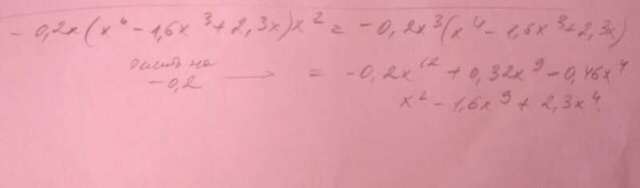 -0,2x(x⁴-1,6x³+2,3x)x²=-0,2x³(x⁴-1,6x³+2,3x)
на → =-0,2x¹²+0,32x⁹-0,46x⁴
-0,2
x²-1,6x⁹+2,3x⁴